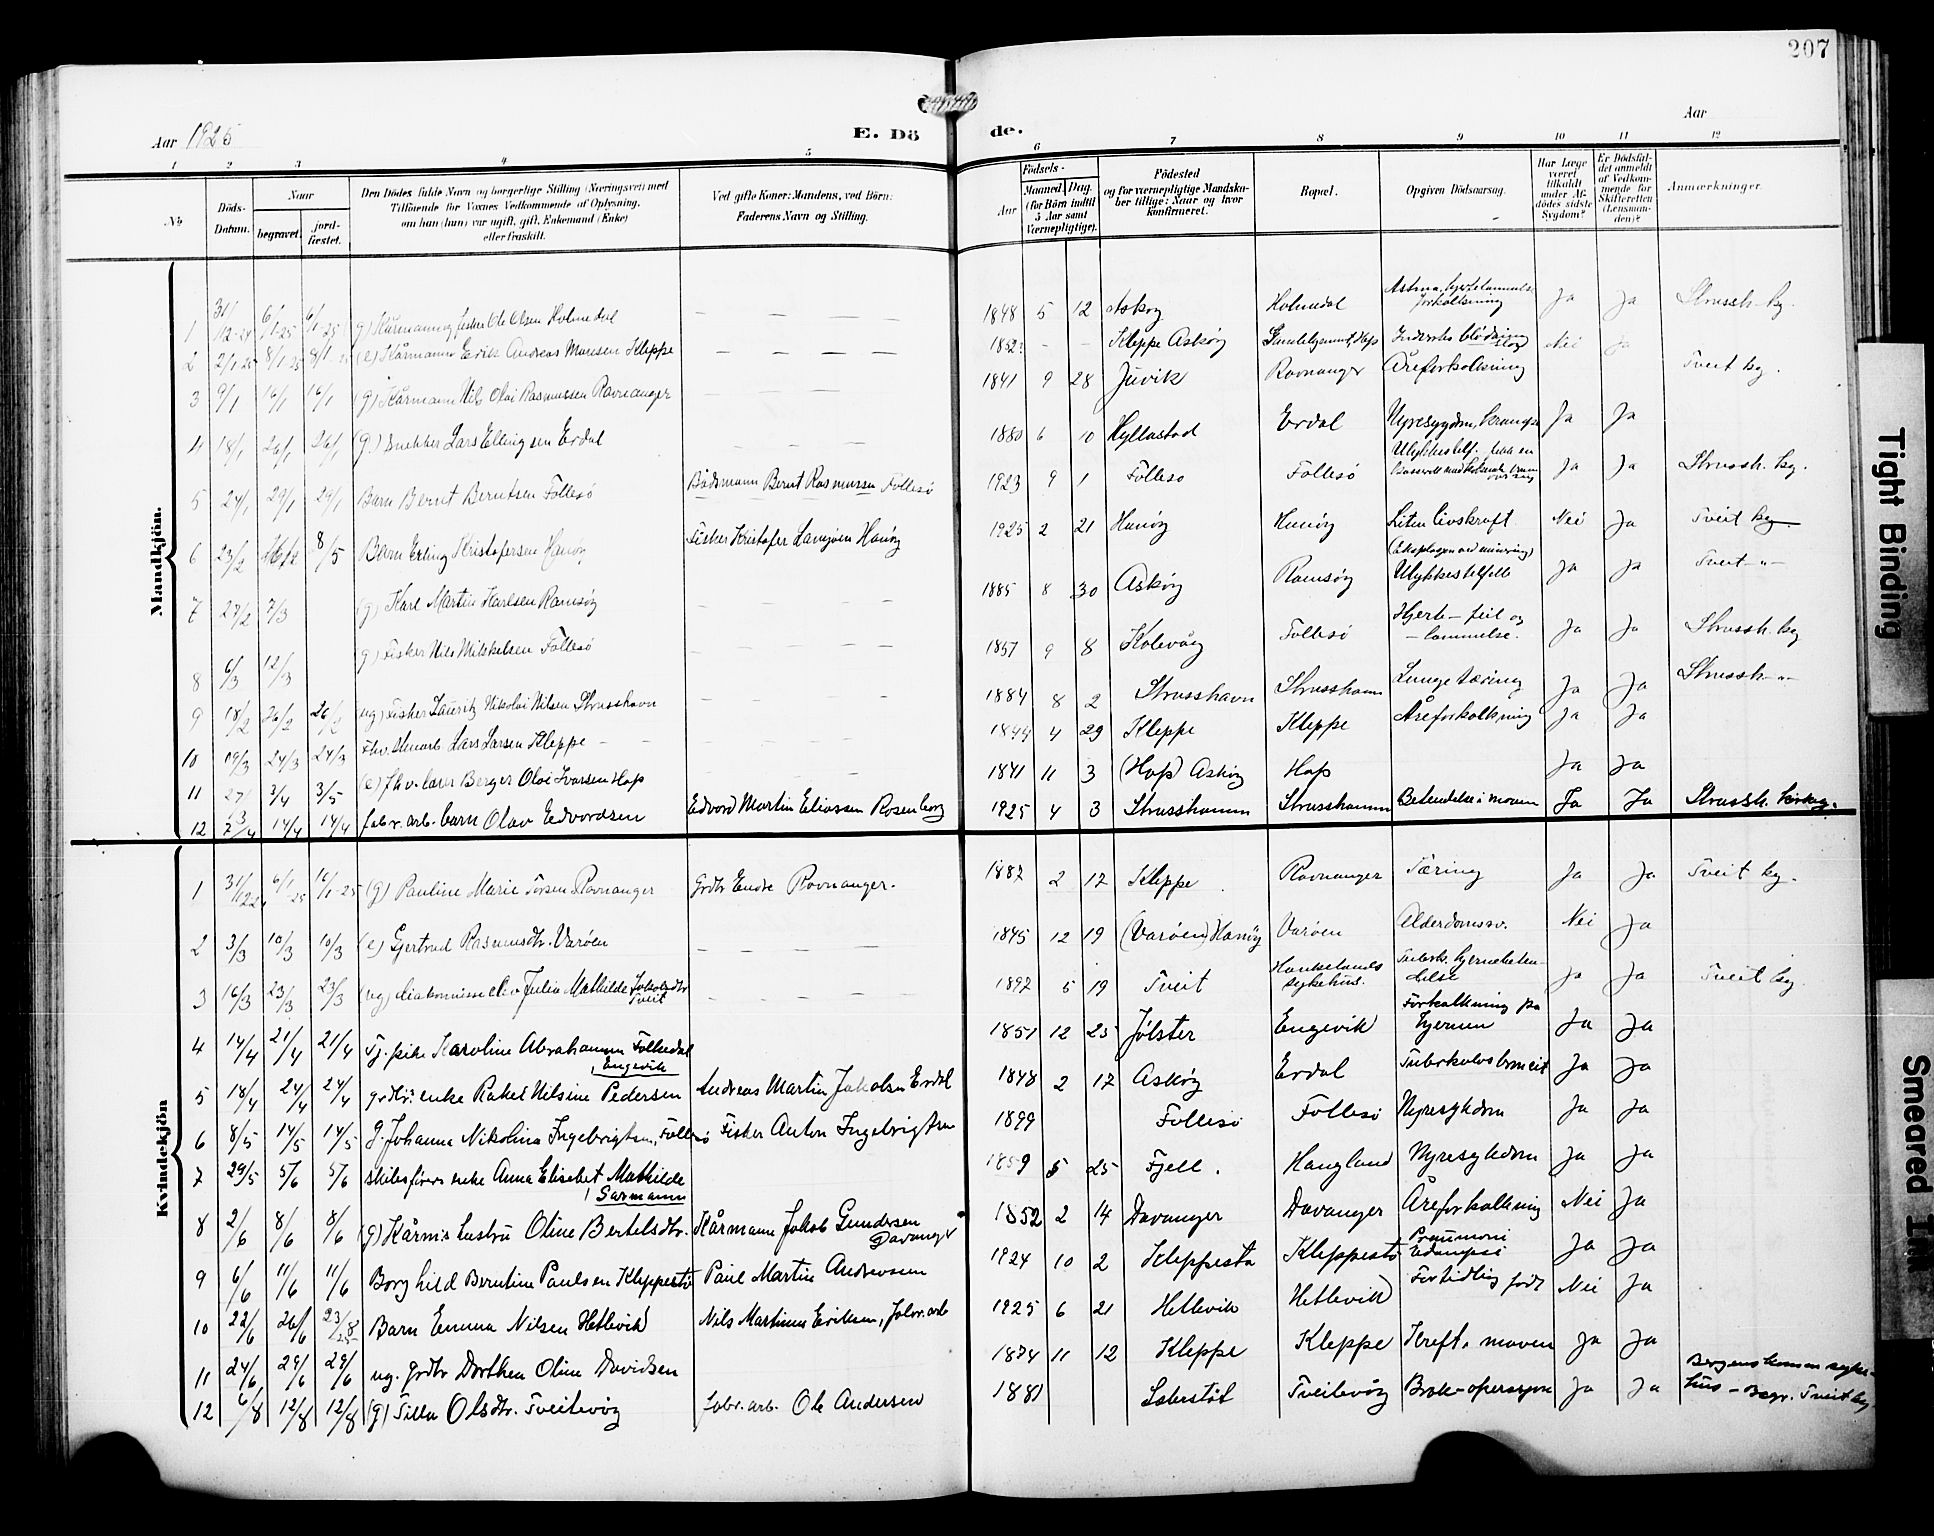 207
Aar 1925
E. Dö de.
Aar
1 2 3 4 5 6 7 8 9 10 11 12
No
Döds-Datum.
Naar
begravet.
jord-fæstet.
Den Dödes fulde Navn og borgerlige Stilling (Næringsvei) med
Tilföiende for Voxnes Vedkommende af Oplysning,
om han (hun) var ugift, gift, Enkemand (Enke)
eller fraskilt.
Ved gifte Koner: Mandens, ved Börn:
Faderens Navn og Stilling.
Födsels-
Aar
Maaned. Dag.
(for Börn indtil
5 Aar samt
Værnepligtige).
Födested
og for værnepligtige Mandska-
ber tillige: Naar og hvor
konfirmeret.
Bopæl.
Opgiven Dödsaarsag.
Har Læge
været
tilkaldt
under Af-
dödes sidste
Sygdom?
Er Dödsfal-
det anmeldt
af Vedkom-
mende for
Skifteretten
(Lensman-
den)?
Anmærkninger.
Mandkjön.
1 31/12-24 6/1-25 6/1-25 (g) Kårmann og fisker Ole Olsen Holmedal — — — — 1848 5 12 Askøy Holmedal Astma, hjertelammelse forkalkning Ja Ja Strussh. kg.
2 2/1-25 8/1-25 8/1-25 (e) Kårmann Erik Andreas Monsen Kleppe — — — — 1852 - - Kleppe Askøy Gamlehjemmet, Hop Indvortes blødning Nei Ja
3 9/1 16/1 16/1 (g) Kårmann Nils Olai Rasmussen Ravnanger — — — — 1841 9 28 Juvik Ravnanger Åreforkalkning Tveit kg.
4 18/1 26/1 26/1 (g.) snekker Lars Ellingsen Erdal — — — 1880 6 10 Hyllastad Erdal Nyresygdom, krampe Ja Ja
5 24/1 29/1 29/1 Barn Bernt Berntsen Follesø Bådsmann Bernt Rasmussen Follesø 1923 9 1 Follesø Follesø Ulykkestilf. Ja Ja Strussh. kg.
6 23/2 8/5 Barn Erling Kristofersen Hanøy Fisker Kristofer Hanøy 1925 2 21 Hanøy Hanøy Liten livskraft Nei Ja Tveit kg
7 27/2 7/3 (g) Karl Martin Karlsen Ramsøy — — — 1885 8 30 Askøy Ramsøy (Eksplosjon ved minering) Ulykkestilfelle Ja Ja Tveit -"-
8 6/3 12/3 (g) Fisker Nils Mikkelsen Follesø — — — — 1857 9 8 Kolevåg Follesø Hjerte-feil og -lammelse. Ja Ja Strussh. kg
9 18/2 26/2 26/2 (ug) Fisker Lauritz Nikolai Nilsen Strusshavn — — — — 1884 8 2 Strusshavn Strusshamn Lungetæring Ja Ja Strussh -"-
10 19/3 24/3 24/3 Fhv. Lars Larsen Kleppe — — — — 1844 4 29 Kleppe Kleppe Åreforkalkning Ja Ja
11 27/3 3/4 3/5 (e) fhv. lærer Berger Olai Ivarsen Hop — — — — 1841 11 3 (Hop) Askøy Hop Ja Ja
12 7/4 14/4 14/4 fabr. arb. barn Olav Edvardsen Edvard Martin Eliassen Rosenborg 1925 4 3 Strusshamn Strusshamn Betendelse i maven Ja Ja Strussh. kirkeg.
Kvindekjön
1 31/12 24 6/1-25 16/1-25 (g) Pauline Marie Ravnanger Grdbr Endre Ravnanger. 1887 2 17 Kleppe Ravnanger Tæring Ja Ja Tveit kg.
2 3/3 10/3 10/3 (e) Gjertrud Rasmusdtr. Varøen — — — — 1845 12 19 (Varøen) Hanøy Varøen Alderdomssv. Nei Ja
3 16/3 23/3 23/3 (ug) diakonisse elev Julia Mathilde Jakobsdtr Tveit — — — — 1897 5 19 Tveit Haukelands sykehus. Tuberk. hjernebetendelse Ja Ja Tveit kg.
4 14/4 21/4 21/4 Tj. pike Karoline Abrahamsen Folkedal, Engevik 1851 12 25 Jølster Engevik Forkalkning på hjernen Ja Ja
5 18/4 24/4 24/4 grdbr. enke Rakel Nilsine Pedersen Andreas Martin Jakobsen Erdal 1848 2 17 Askøy Erdal Tuberkuløs Ja Ja
6 8/5 14/5 14/5 g. Johanna Nikolina Ingebrigtsen, Follesø Fisker Anton Ingebrigtsen 1899 Follesø Follesø Nyresykdom Ja Ja
7 29/5 5/6 5/6 skibsførers enke Anna Elisebet Mathilde Sarmann 1859 5 25 Fjell. Haugland Nyresykdom Ja Ja
8 2/6 8/6 8/6 (g) Kårm's hustru Oline Bertelsdtr. Kårmann Jakob Gundersen Davanger 1852 2 14 Davanger Davanger Åreforkalkning Nei Ja
9 6/6 11/6 11/6 Borghild Berntine Paulsen Kleppestø Paul Martin Andreassen 1924 10 2 Kleppestø Kleppestø Pneumoni Eclampsi Ja Ja
10 22/6 26/6 23/8 25 Barn Emma Nilsen Hetlevik Nils Martinus Eriksen, fabr. arb 1925 6 21 Hetlevik Hetlevik Fortidlig født Nei Ja
11 24/6 29/6 29/6 ug. grdbr Dorthea Oline Davidsen 1874 11 12 Kleppe Kleppe Kreft i maven Ja Ja
12 6/8 12/8 12/8 (g) Tilla Olsdtr. Tveitevåg fabr. arb. Ole Andersen 1881 Tveitevåg Brok-operasjon Ja Ja Bergens komm. sykehus - Begr. Tveit kg.
Tight Binding
Smeared Ink